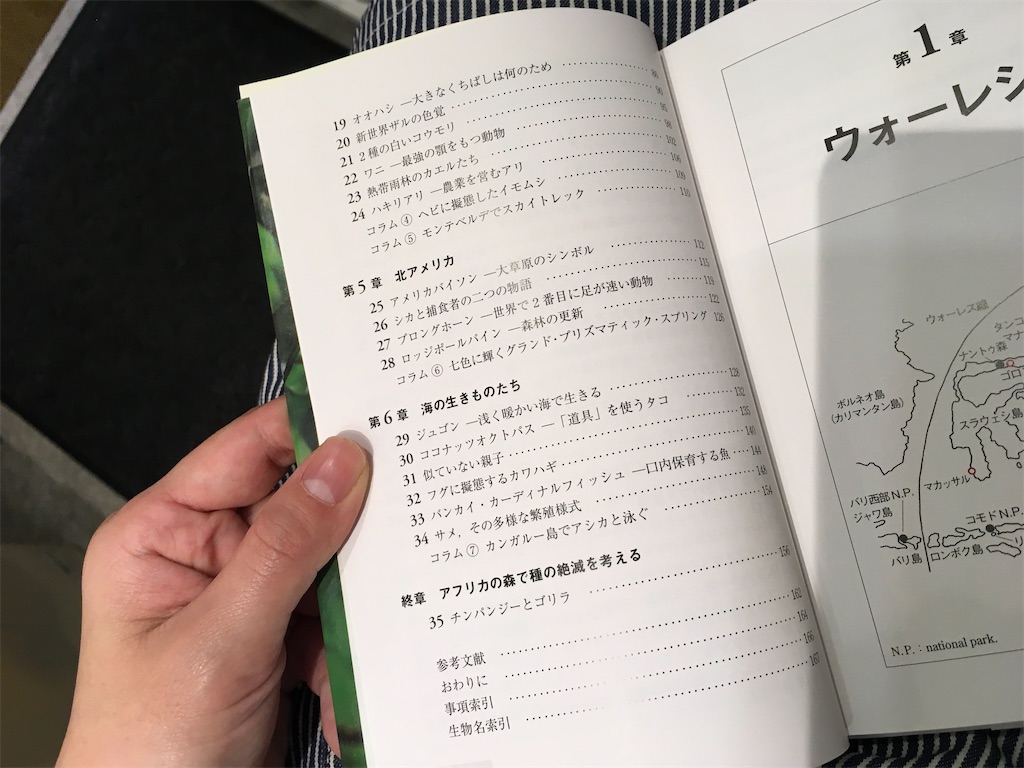 19 オオハシ ―大きなくちばしは何のため ………… 86
20 新世界ザルの色覚 ………… 90
21 2種の白いコウモリ ………… 95
22 ワニ ―最強の顎をもつ動物 ………… 98
23 熱帯雨林のカエルたち ………… 102
24 ハキリアリ ―農業を営むアリ ………… 106
コラム④ ヘビに擬態したイモムシ ………… 109
コラム⑤ モンテベルデでスカイトレック ………… 110
第5章 北アメリカ
25 アメリカバイソン ―大草原のシンボル ………… 112
26 シカと捕食者の二つの物語 ………… 115
27 プロングホーン ―世界で2番目に足が速い動物 ………… 119
28 ロッジポールパイン ―森林の更新 ………… 122
コラム⑥ 七色に輝くグランド・プリズマティック・スプリング 126
第6章 海の生きものたち
29 ジュゴン ―浅く暖かい海で生きる ………… 128
30 ココナッツオクトパス ―「道具」を使うタコ ………… 132
31 似ていない親子 ………… 135
32 フグに擬態するカワハギ ………… 140
33 バンカイ・カーディナルフィッシュ ―口内保育する魚 … 144
34 サメ，その多様な繁殖様式 ………… 148
コラム⑦ カンガルー島でアシカと泳ぐ ………… 154
終章 アフリカの森で種の絶滅を考える
35 チンパンジーとゴリラ ………… 156
参考文献 ………… 162
おわりに ………… 164
事項索引 ………… 166
生物名索引 ………… 167
第1章
ウォーレシ
ウォーレス線
タンコ
マナ
ナントゥ森
ゴロ
ボルネオ島
(カリマンタン島)
スラウェシ島
マカッサル
バリ西部N.P.
ジャワ島
コモドN.P.
バリ島
ロンボク島
リ
N.P.：national park.